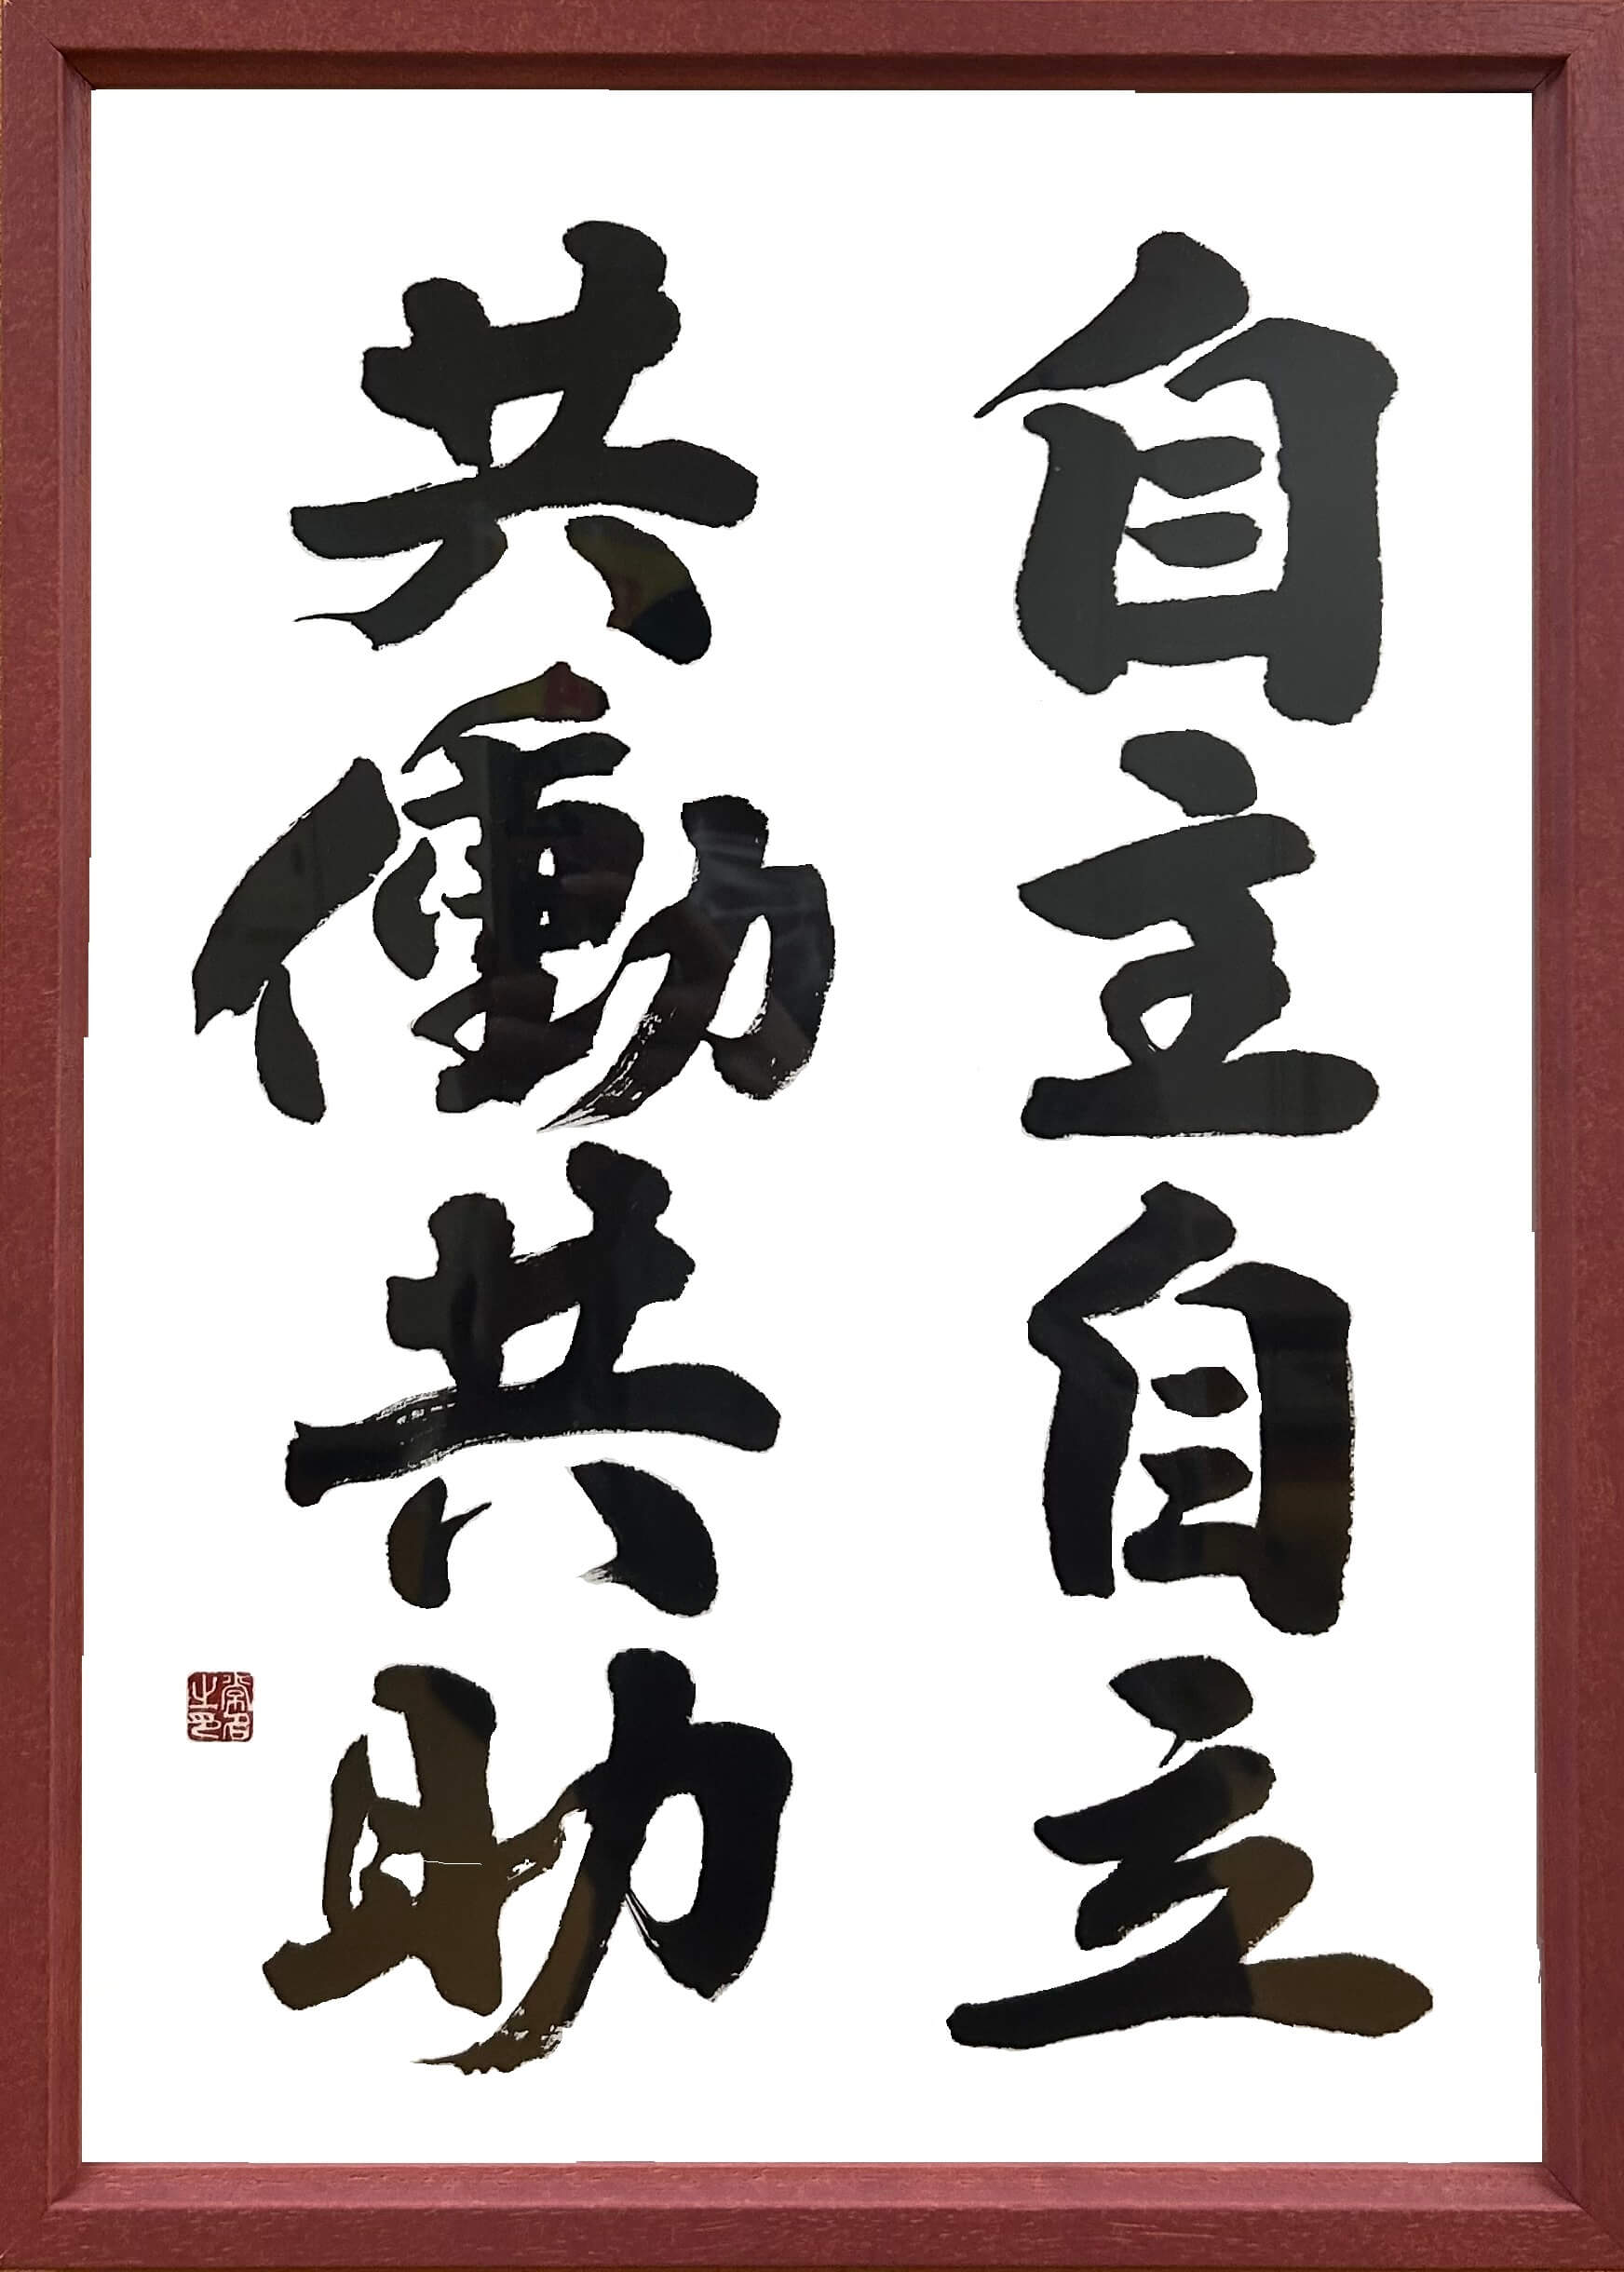 自主自立
共働共助